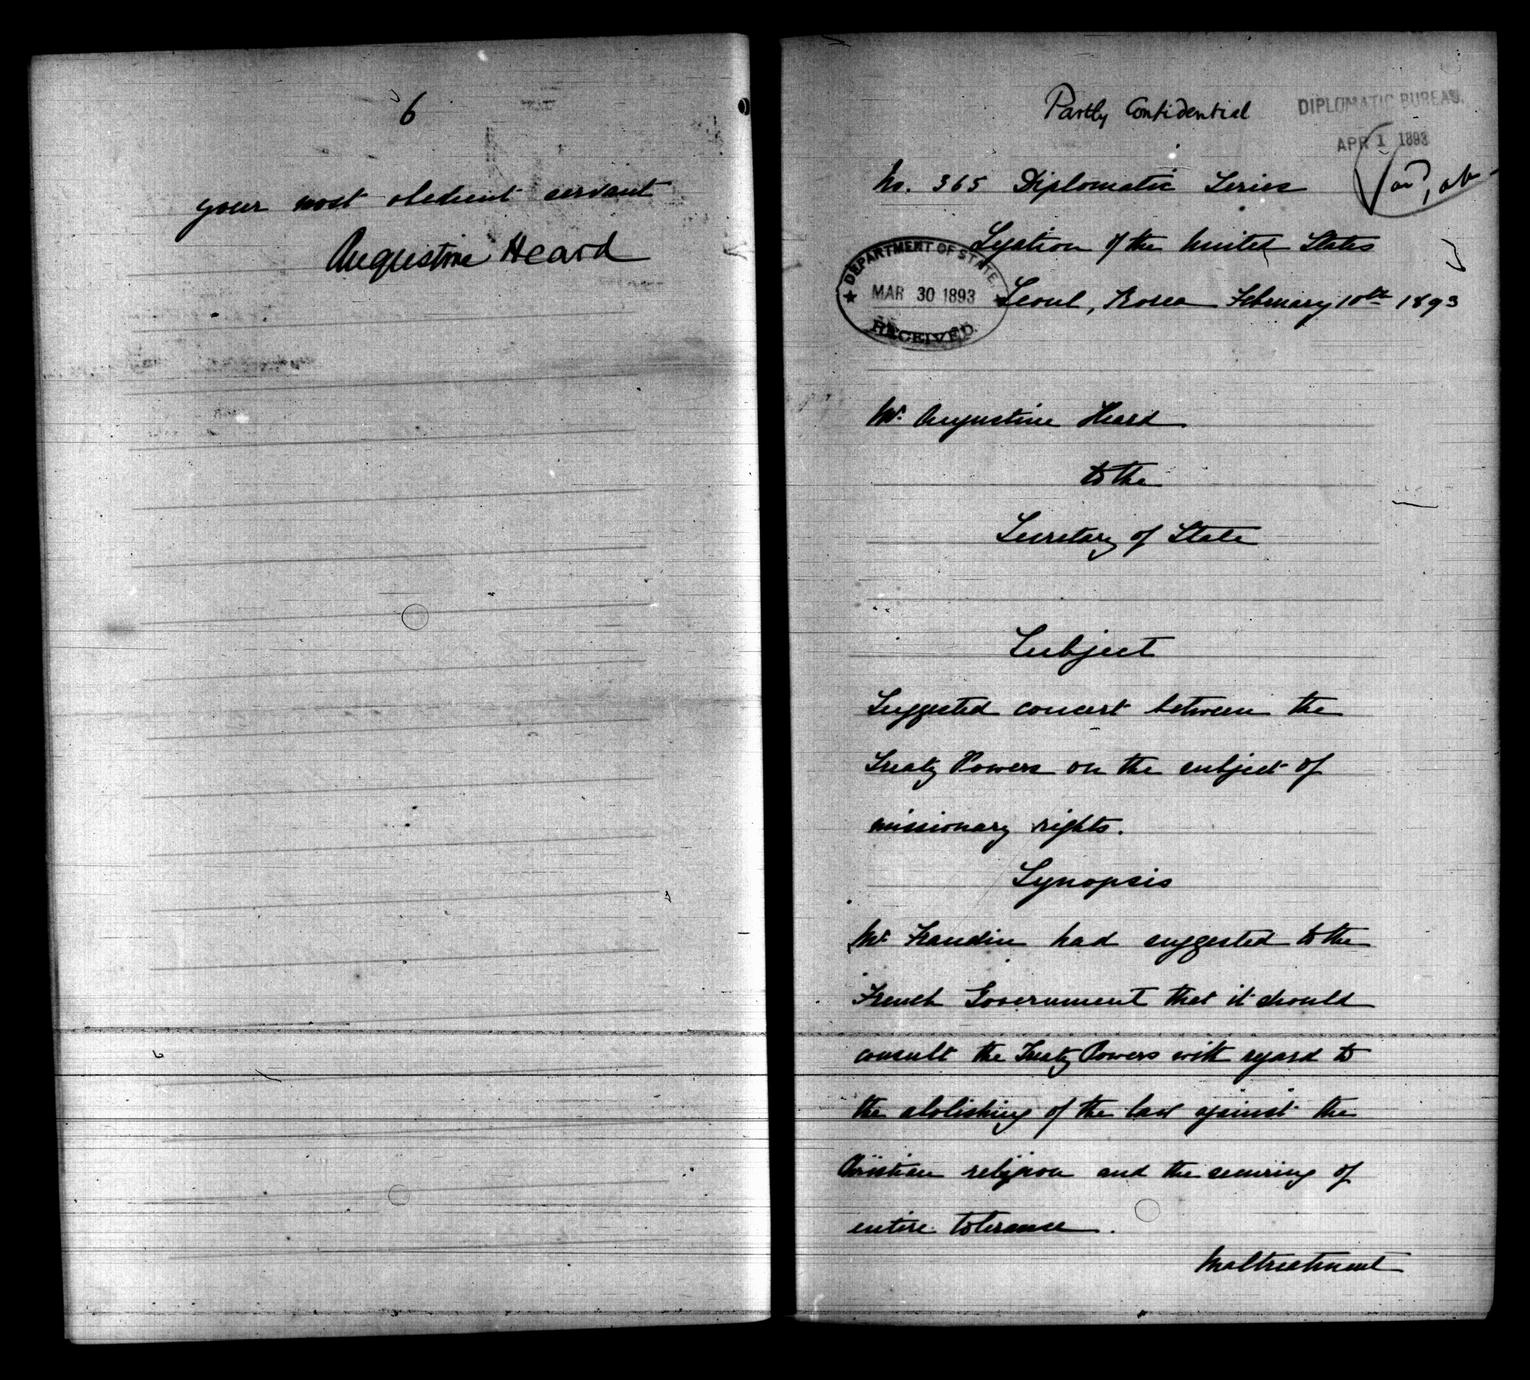 6
your most obedient servant
Augustine Heard
Partly Confidential
DIPLOMATIC BUREAU.
APR 1 1893
No. 365 Diplomatic Series
Legation of the United States
DEPARTMENT OF STATE,
MAR 30 1893
RECEIVED.
Seoul, Korea February 10th 1893
Mr. Augustine Heard
to the
Secretary of State
Subject
Suggested concert between the
Treaty Powers on the subject of
missionary rights.
Synopsis
Mr Frandin had suggested to the
French Government that it should
consult the Treaty Powers with regard to
the abolishing of the law against the
Christian religion and the securing of
entire tolerance.
Maltreatment